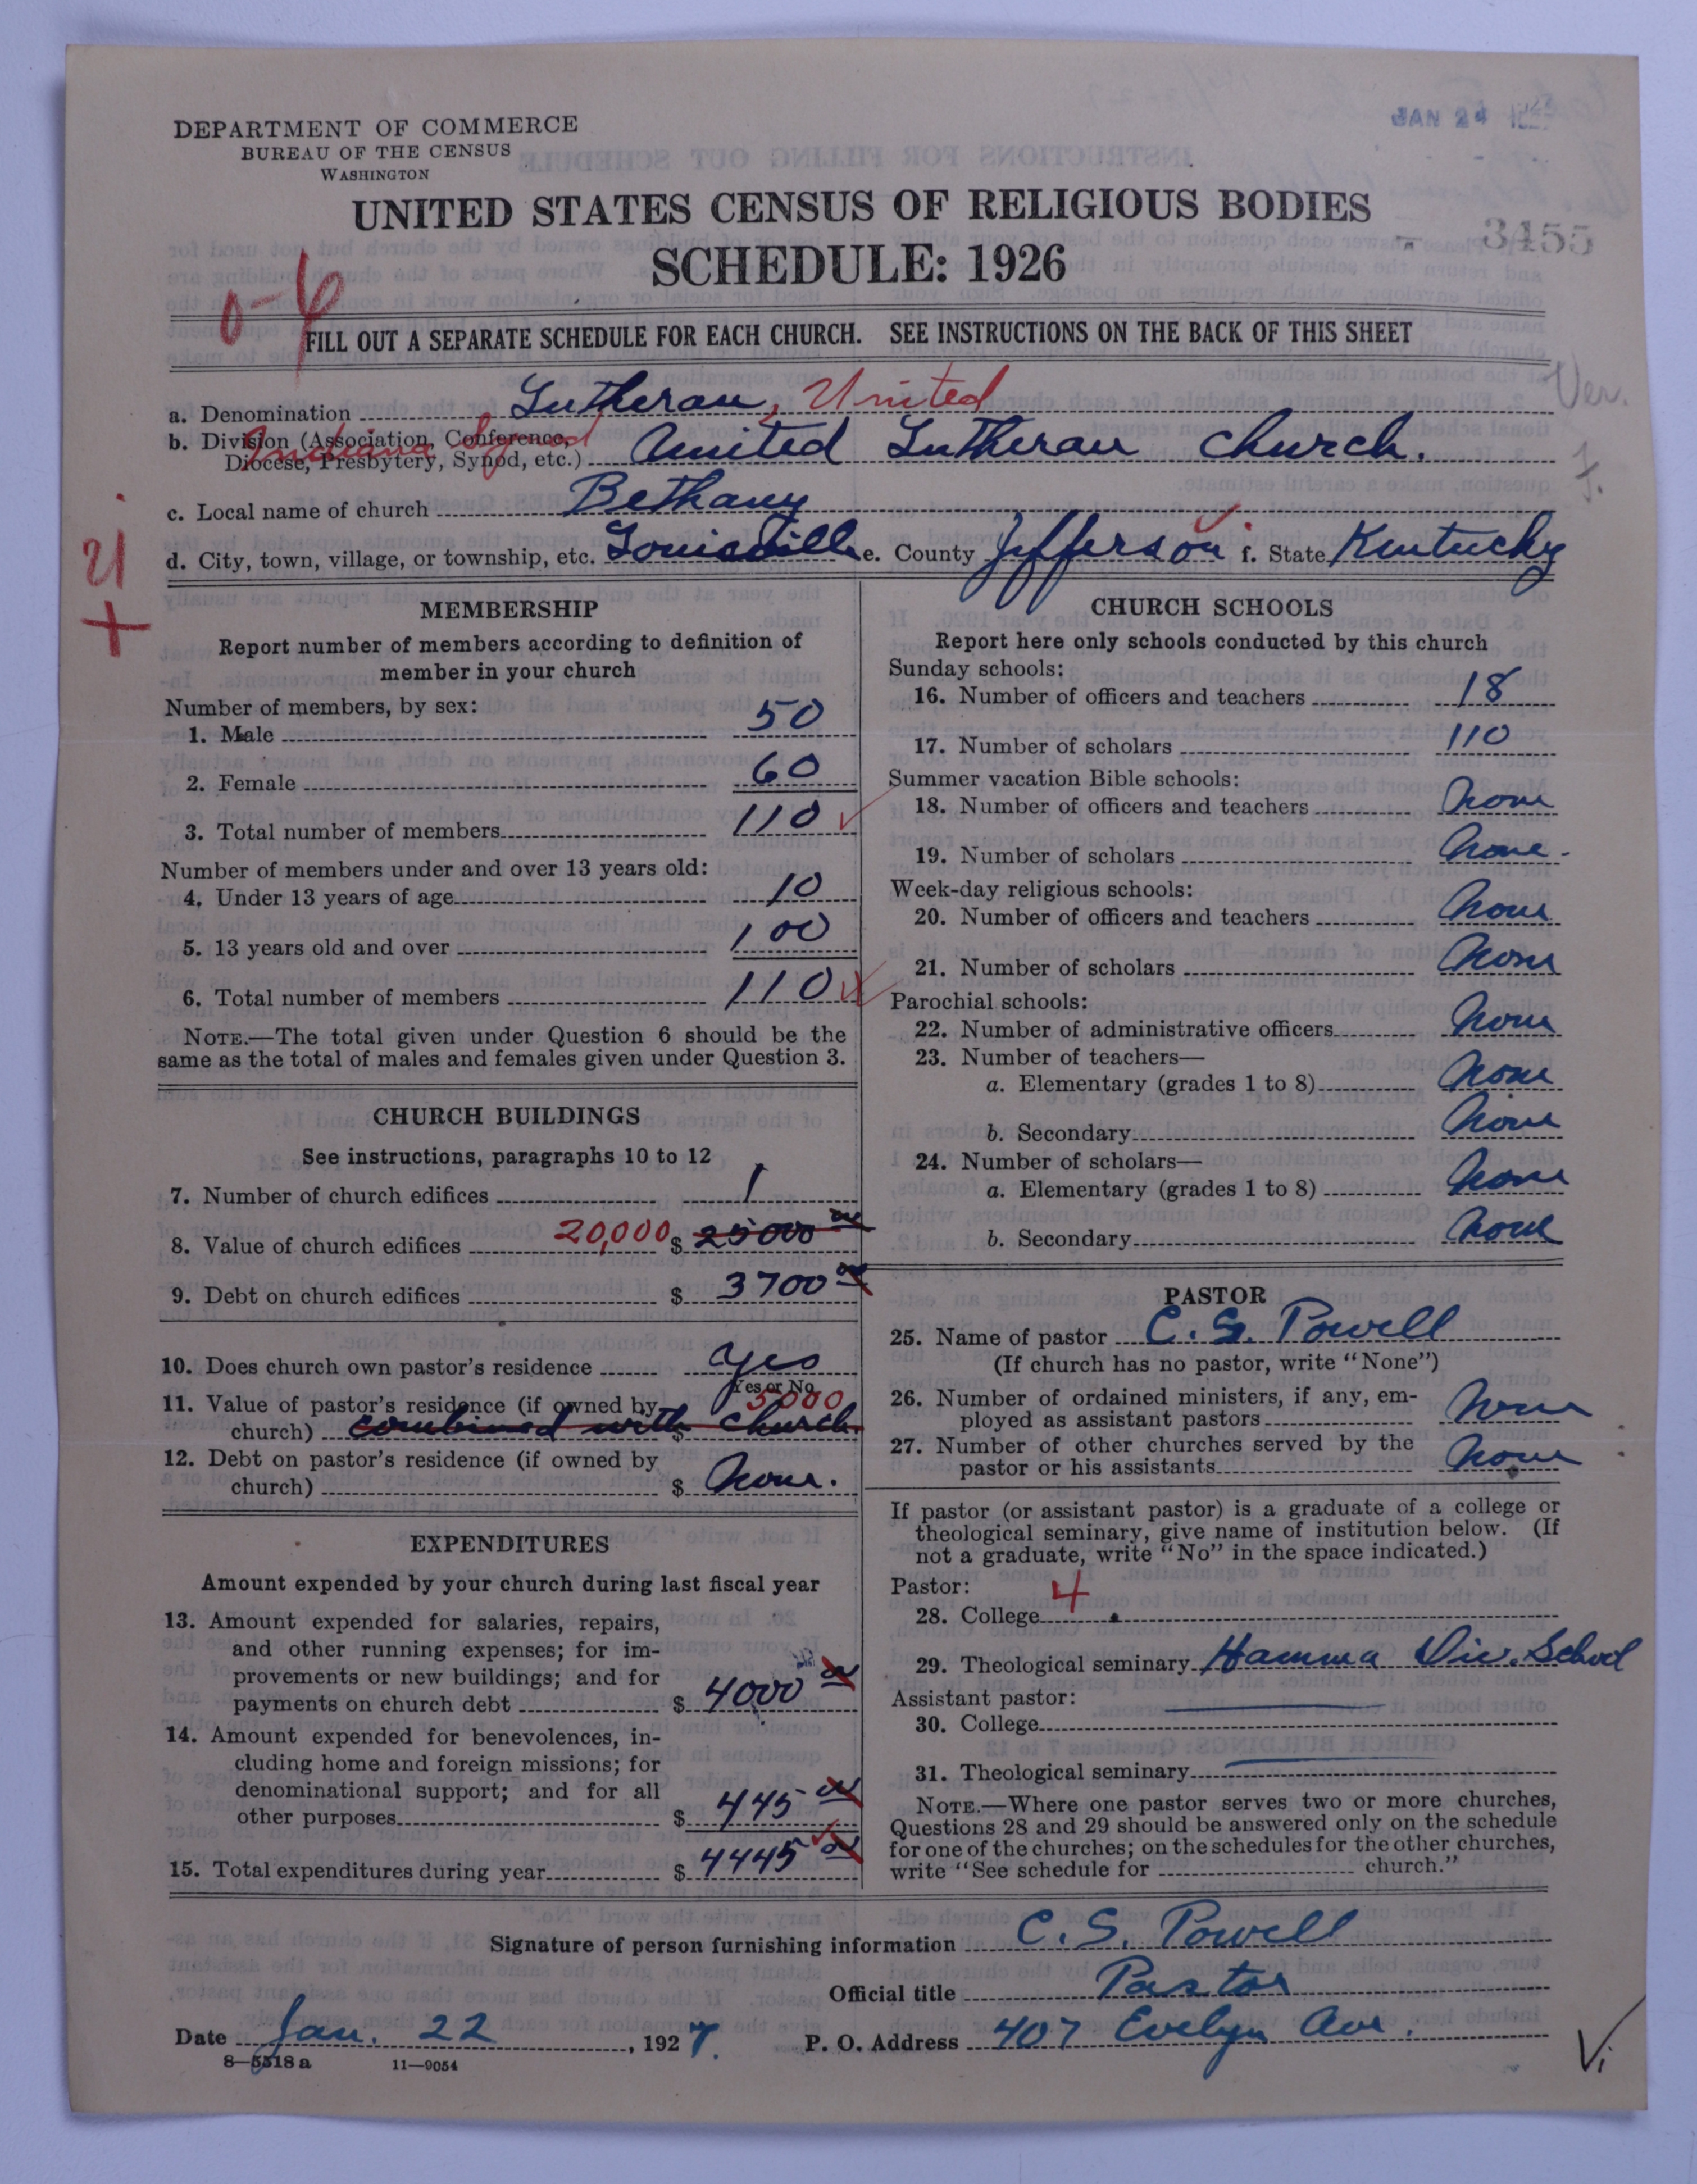 DEPARTMENT OF COMMERCE
BUREAU OF THE CENSUS
WASHINGTON
JAN 24
UNITED STATES CENSUS OF RELIGIOUS BODIES
3455
SCHEDULE: 1926
FILL OUT A SEPARATE SCHEDULE FOR EACH CHURCH. SEE INSTRUCTIONS ON THE BACK OF THIS SHEET
Ver.
a. Denomination Lutheran, United
b. Division (Association, Conference, Diocese, Presbytery, Synod, etc.) United Lutheran Church.
Indiana Synod
c. Local name of church Bethany
d. City, town, village, or township, etc. Louisville e. County Jefferson f. State Kentucky
21
+
MEMBERSHIP
Report number of members according to definition of
member in your church
Number of members, by sex:
1. Male 50
2. Female 60
3. Total number of members 110
Number of members under and over 13 years old:
4. Under 13 years of age 10
5. 13 years old and over 100
6. Total number of members 110
NOTE.—The total given under Question 6 should be the
same as the total of males and females given under Question 3.
CHURCH BUILDINGS
See instructions, paragraphs 10 to 12
7. Number of church edifices 1
8. Value of church edifices 20,000 $ 25000 00
9. Debt on church edifices $ 3700 00
10. Does church own pastor's residence yes
Yes or No
11. Value of pastor's residence (if owned by 5000
church) $ combined with church
12. Debt on pastor's residence (if owned by
church) $ None.
EXPENDITURES
Amount expended by your church during last fiscal year
13. Amount expended for salaries, repairs,
and other running expenses; for im-
provements or new buildings; and for
payments on church debt $ 4000 00
14. Amount expended for benevolences, in-
cluding home and foreign missions; for
denominational support; and for all
other purposes $ 445 00
15. Total expenditures during year $ 4445 00
CHURCH SCHOOLS
Report here only schools conducted by this church
Sunday schools:
16. Number of officers and teachers 18
17. Number of scholars 110
Summer vacation Bible schools:
18. Number of officers and teachers None
19. Number of scholars None
Week-day religious schools:
20. Number of officers and teachers None
21. Number of scholars None
Parochial schools:
22. Number of administrative officers None
23. Number of teachers—
a. Elementary (grades 1 to 8) None
b. Secondary None
24. Number of scholars—
a. Elementary (grades 1 to 8) None
b. Secondary None
PASTOR
25. Name of pastor C. S. Powell
(If church has no pastor, write "None")
26. Number of ordained ministers, if any, em-
ployed as assistant pastors None
27. Number of other churches served by the
pastor or his assistants None
If pastor (or assistant pastor) is a graduate of a college or
theological seminary, give name of institution below. (If
not a graduate, write "No" in the space indicated.)
Pastor:
28. College 4
29. Theological seminary Hamma Div. School
Assistant pastor:
30. College
31. Theological seminary
NOTE.—Where one pastor serves two or more churches,
Questions 28 and 29 should be answered only on the schedule
for one of the churches; on the schedules for the other churches,
write "See schedule for church."
Signature of person furnishing information C. S. Powell
Official title Pastor
Date Jan. 22, 1927. P. O. Address 407 Evelyn Ave.
8—5518 a 11—9054